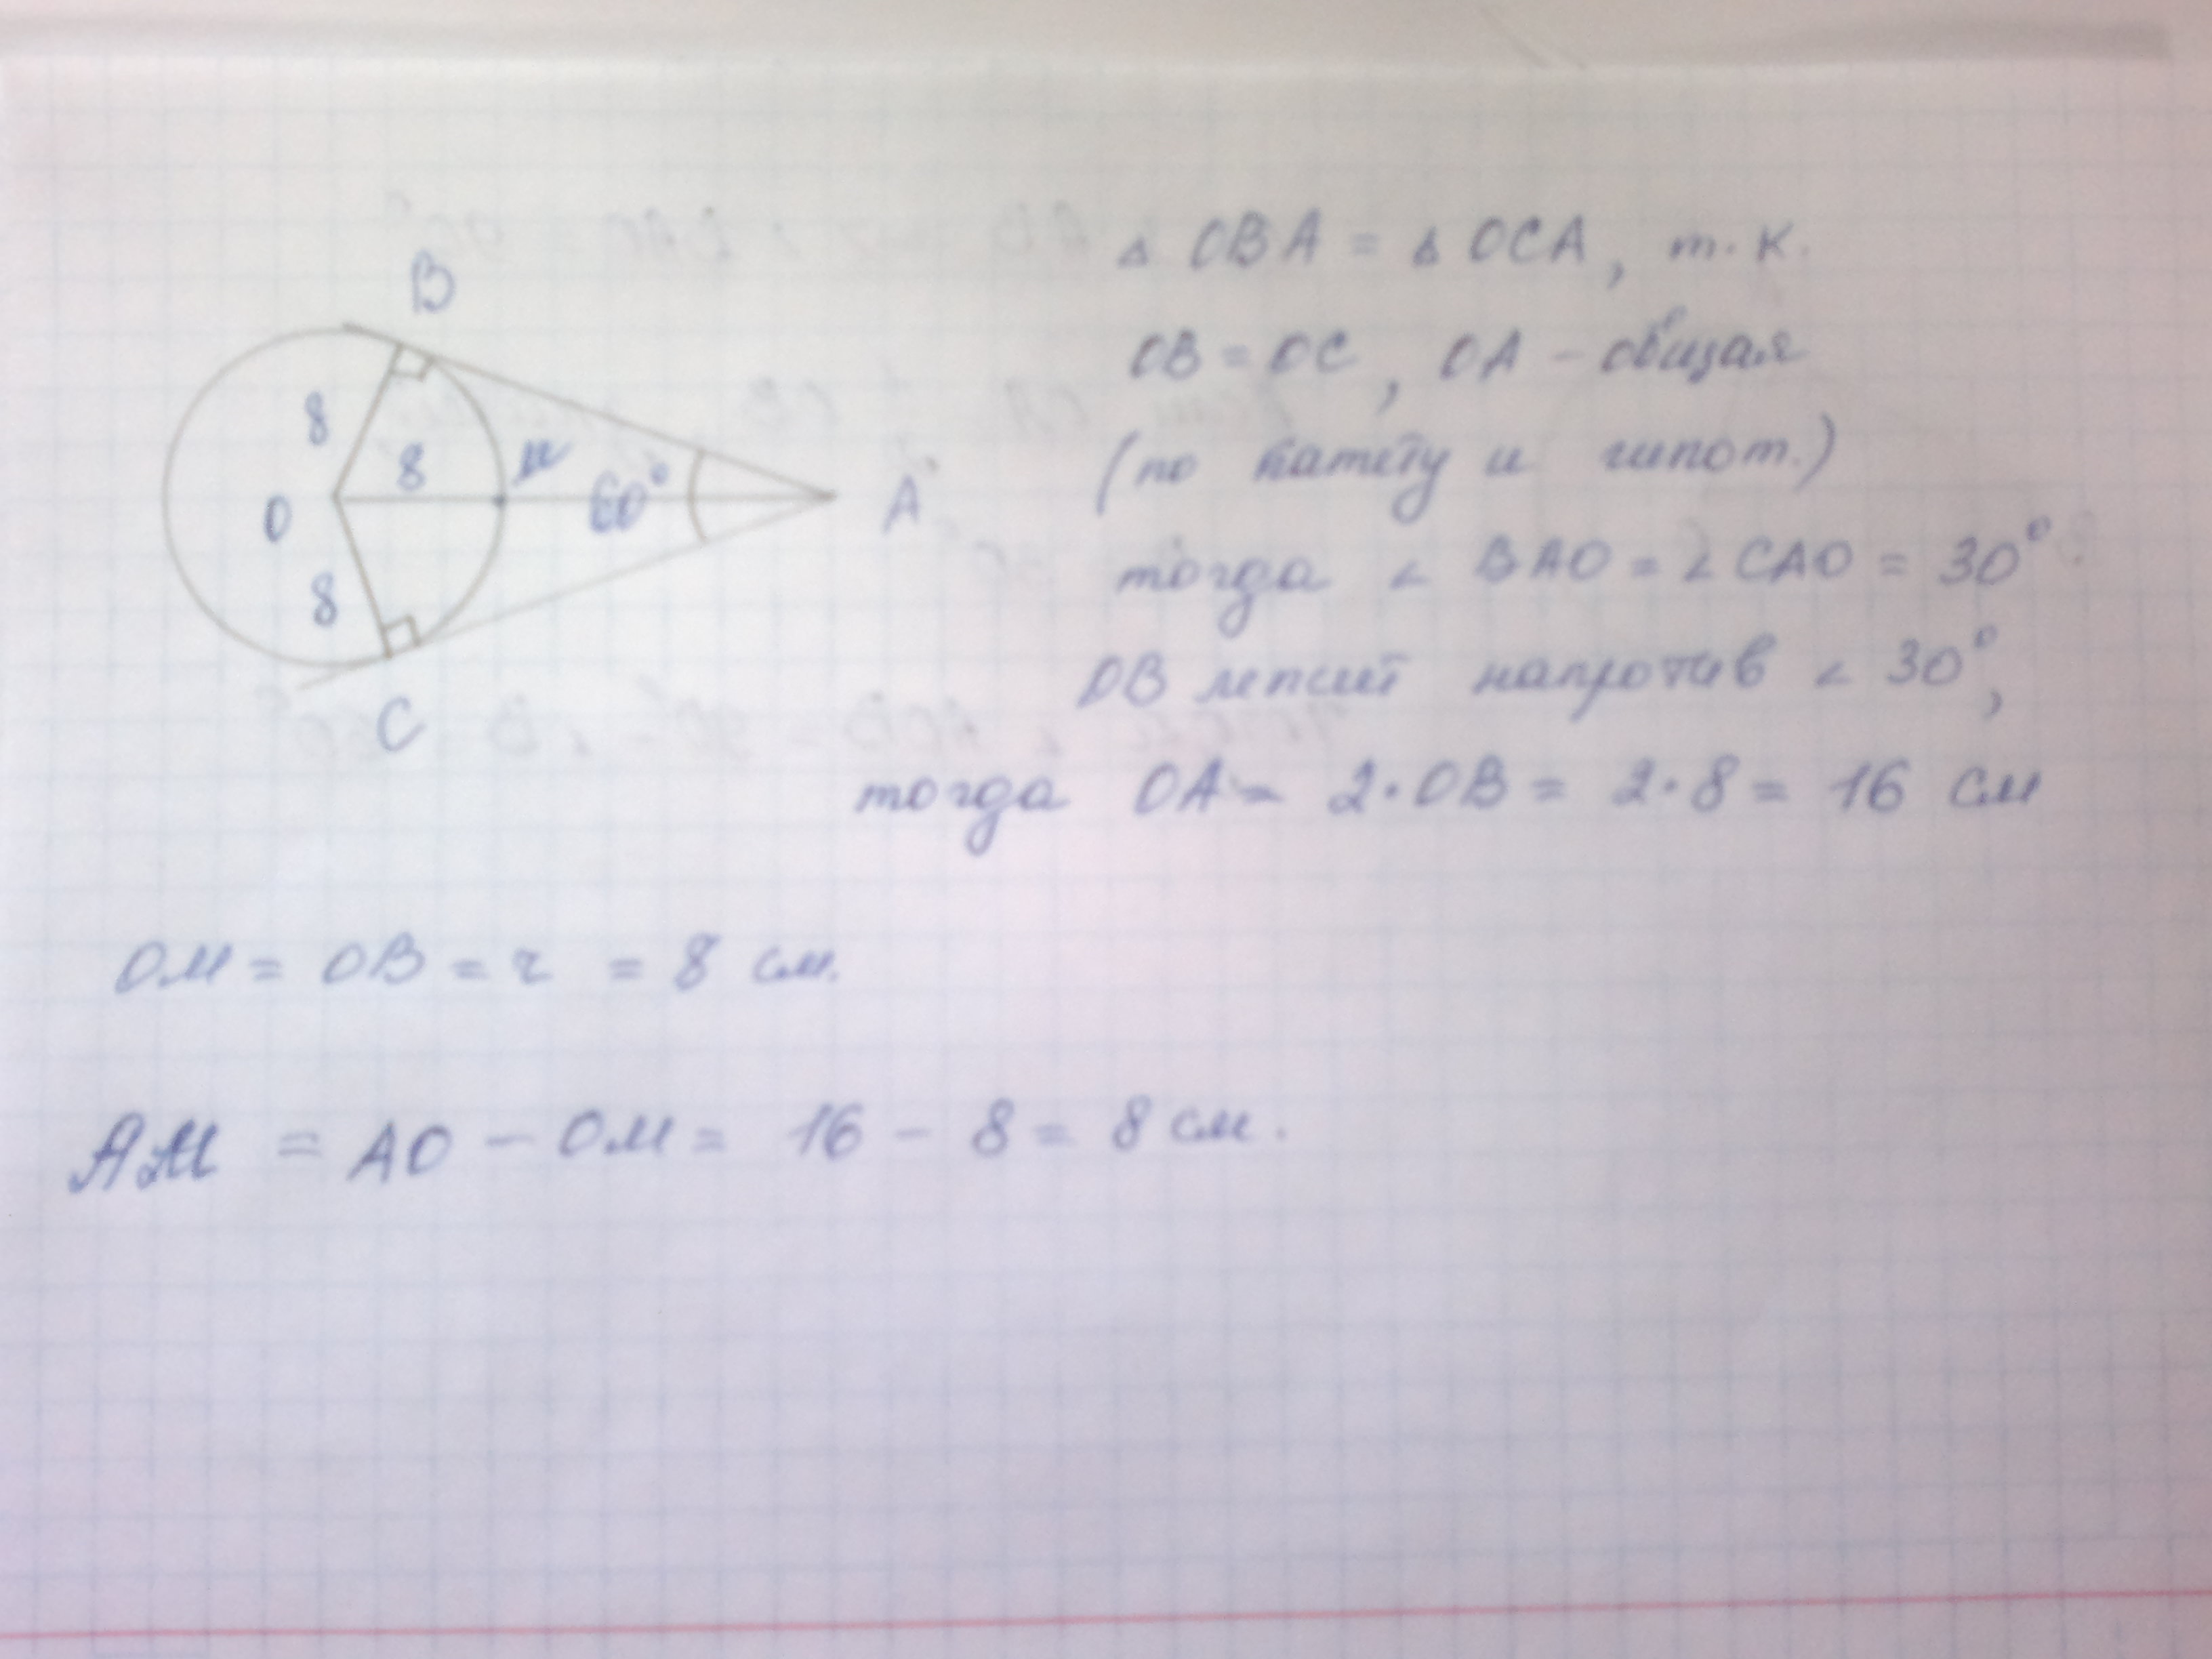 B
8
8
M
60°
A
O
8
C
△ OBA = △ OCA, т.к.
OB = OC, OA - общая
(по катету и гипот.)
тогда ∠ BAO = ∠ CAO = 30°
OB лежит напротив ∠ 30°,
тогда OA = 2·OB = 2·8 = 16 см
OM = OB = r = 8 см.
AM = AO - OM = 16 - 8 = 8 см.